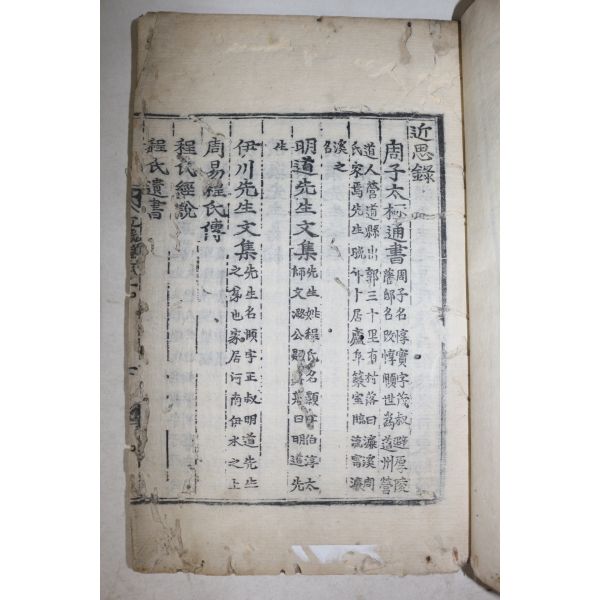 近思錄
周子太極通書周子名惇實字茂叔避厚陵
藩邸名改惇頤世爲道州營
道人營道縣出郭三十里有村落曰濂溪周
氏家焉先生晩卜居廬阜築室臨流寓濂
溪之
名
明道先生文集先生姓程氏名顥字伯淳太
師文潞公題其墓曰明道先
生
伊川先生文集先生名頤字正叔明道先生
之弟也家居河南伊水之上
周易程氏傳
程氏經說
程氏遺書